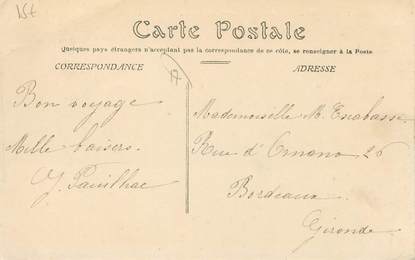 15€
Carte Postale
Quelques pays étrangers n'acceptant pas la correspondance de ce côté, se renseigner à la Poste
CORRESPONDANCE
ADRESSE
Bon voyage
Mille baisers
Y.
Mademoiselle M.
Rue d'Ornano 26
Bordeaux
Gironde